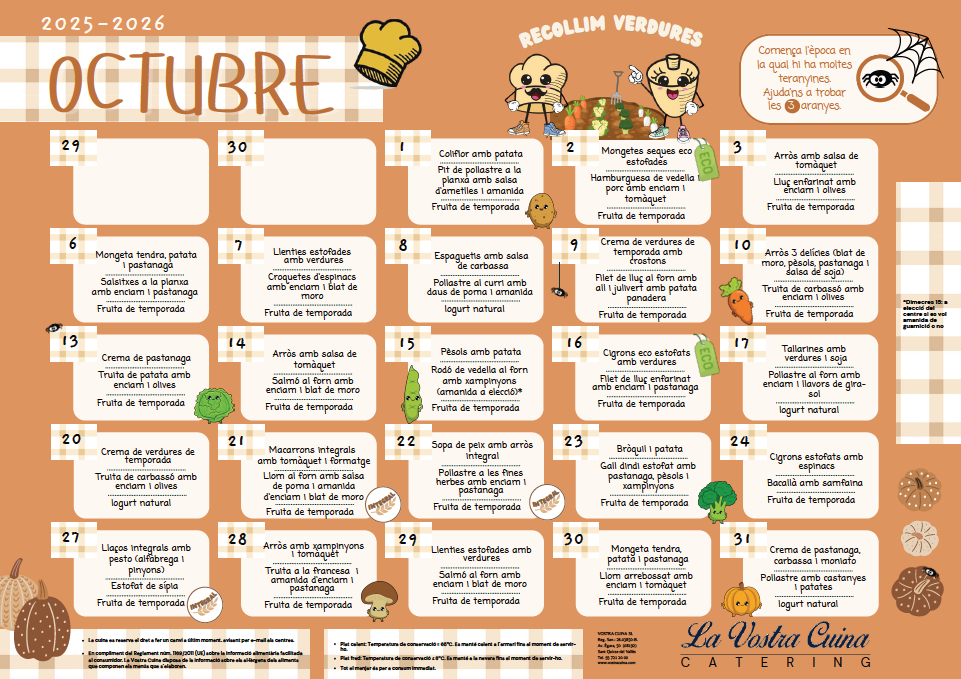 2025-2026
OCTUBRE
RECOLLIM VERDURES
Comença l'època en
la qual hi ha moltes
teranyines.
Ajuda'ns a trobar
les 3 aranyes.
29
30
1
Coliflor amb patata
Pit de pollastre a la
planxa amb salsa
d'ametlles i amanida
Fruita de temporada
2
Mongetes seques eco
estofades
Hamburguesa de vedella i
porc amb enciam i
tomàquet
Fruita de temporada
ECO
3
Arròs amb salsa de
tomàquet
Lluç enfarinat amb
enciam i olives
Fruita de temporada
6
Mongeta tendra, patata
i pastanaga
Salsitxes a la planxa
amb enciam i pastanaga
Fruita de temporada
7
Llenties estofades
amb verdures
Croquetes d'espinacs
amb enciam i blat de
moro
Fruita de temporada
8
Espaguetis amb salsa
de carbassa
Pollastre al curri amb
daus de poma i amanida
Iogurt natural
9
Crema de verdures de
temporada amb
crostons
Filet de lluç al forn amb
all i julivert amb patata
panadera
Fruita de temporada
10
Arròs 3 delícies (blat de
moro, pèsols, pastanaga i
salsa de soja)
Truita de carbassó amb
enciam i olives
Fruita de temporada
*Dimecres 15: a
elecció del
centre si es vol
amanida de
guarnició o no
13
Crema de pastanaga
Truita de patata amb
enciam i olives
Fruita de temporada
14
Arròs amb salsa de
tomàquet
Salmó al forn amb
enciam i blat de moro
Fruita de temporada
15
Pèsols amb patata
Rodó de vedella al forn
amb xampinyons
(amanida a elecció)*
Fruita de temporada
16
Cigrons eco estofats
amb verdures
Filet de lluç enfarinat
amb enciam i pastanaga
Fruita de temporada
ECO
17
Tallarines amb
verdures i soja
Pollastre al forn amb
enciam i llavors de gira-
sol
Iogurt natural
20
Crema de verdures de
temporada
Truita de carbassó amb
enciam i olives
Iogurt natural
21
Macarrons integrals
amb tomàquet i formatge
Llom al forn amb salsa
de poma i amanida
d'enciam i blat de moro
Fruita de temporada
INTEGRAL
22
Sopa de peix amb arròs
integral
Pollastre a les fines
herbes amb enciam i
pastanaga
Fruita de temporada
INTEGRAL
23
Bròquil i patata
Gall dindi estofat amb
pastanaga, pèsols i
xampinyons
Fruita de temporada
24
Cigrons estofats amb
espinacs
Bacallà amb samfaina
Fruita de temporada
27
Llaços integrals amb
pesto (alfàbrega i
pinyons)
Estofat de sípia
Fruita de temporada
INTEGRAL
28
Arròs amb xampinyons
i tomàquet
Truita a la francesa i
amanida d'enciam i
pastanaga
Fruita de temporada
29
Llenties estofades amb
verdures
Salmó al forn amb
enciam i blat de moro
Fruita de temporada
30
Mongeta tendra,
patata i pastanaga
Llom arrebossat amb
enciam i tomàquet
Fruita de temporada
31
Crema de pastanaga,
carbassa i moniato
Pollastre amb castanyes
i patates
Iogurt natural
La cuina es reserva el dret a fer un canvi a últim moment, avisant per e-mail als centres.
En compliment del Reglament núm. 1169/2011 (UE) sobre la informació alimentària facilitada
al consumidor. La Vostra Cuina disposa de la informació sobre els al·lèrgens dels aliments
que componen els menús que s'elaboren.
Plat calent: Temperatura de conservació ≥ 65ºC. Es manté calent a l'armari fins al moment de servir-
ho.
Plat fred: Temperatura de conservació ≤ 8ºC. Es manté a la nevera fins al moment de servir-ho.
Tot el menjar és per a consum immediat.
VOSTRA CUINA SL
Sant Quirze del Vallès
www.vostracuina.com
La Vostra Cuina
CATERING